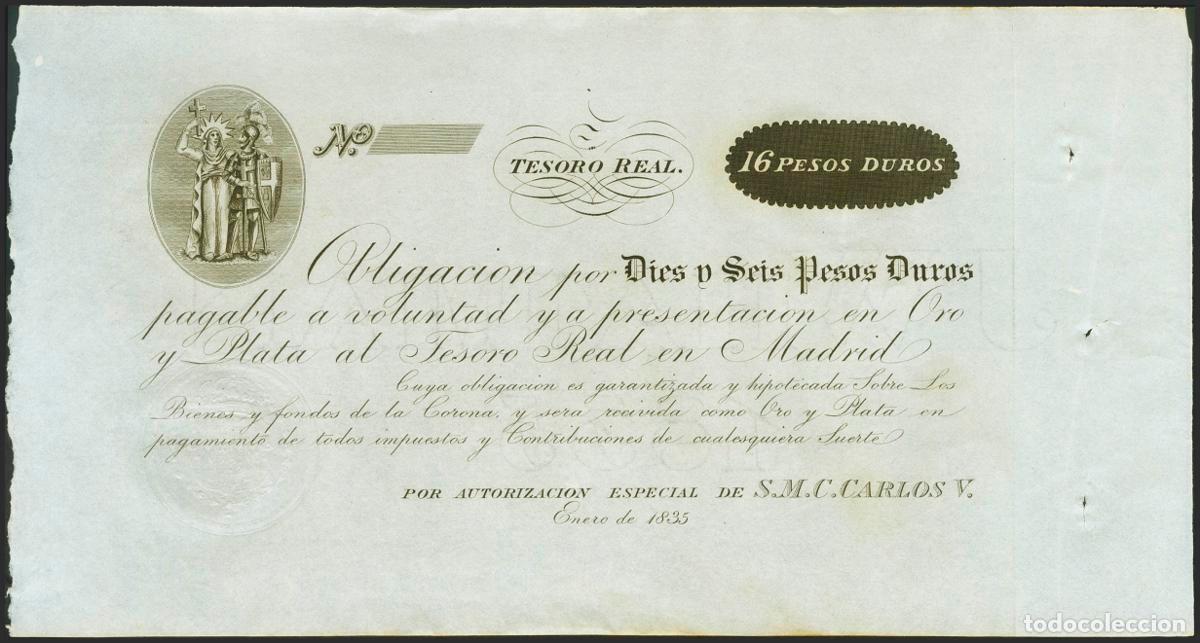 No.
TESORO REAL.
16 PESOS DUROS
Obligacion por Dies y Seis Pesos Duros
pagable a voluntad y a presentacion en Oro
y Plata al Tesoro Real en Madrid
Cuya obligacion es garantizada y hipotécada Sobre Los
Bienes y fondos de la Corona, y sera recivida como Oro y Plata en
pagamiento de todos impuestos y Contribuciones de cualesquiera Suerte
POR AUTORIZACION ESPECIAL DE S.M.C. CARLOS V.
Enero de 1835
todocoleccion